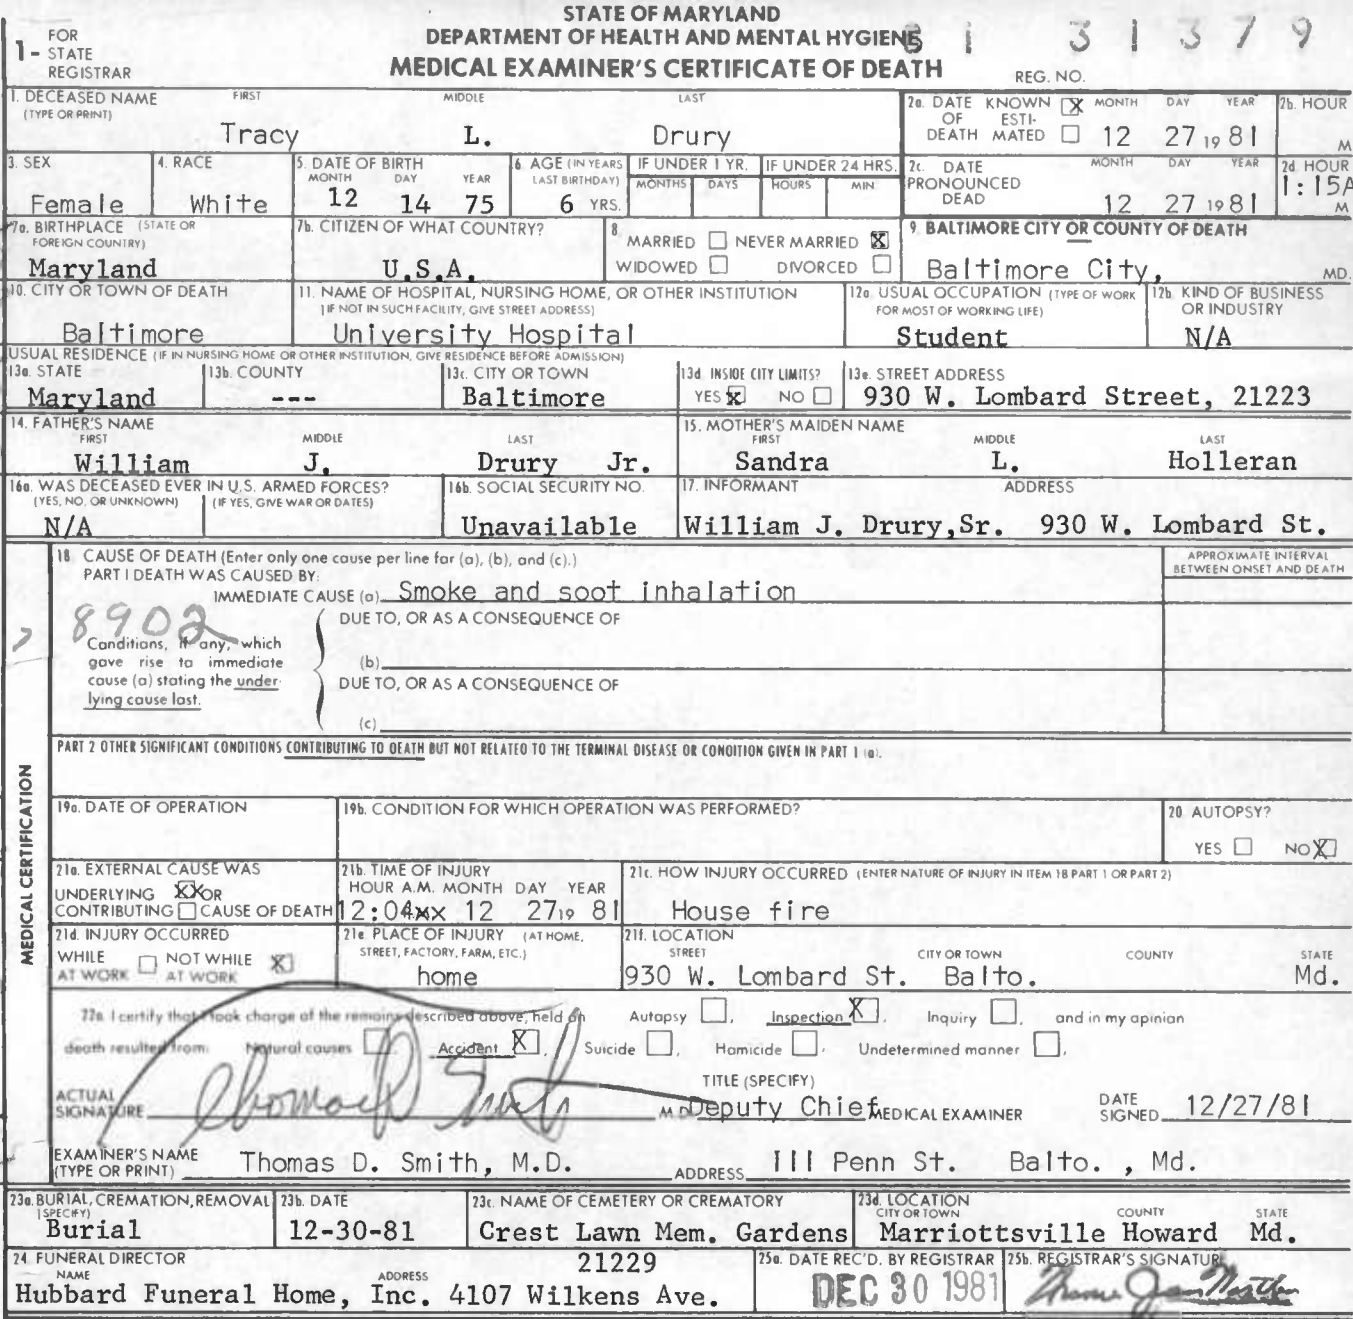 STATE OF MARYLAND
DEPARTMENT OF HEALTH AND MENTAL HYGIENE
MEDICAL EXAMINER'S CERTIFICATE OF DEATH
1- FOR STATE REGISTRAR
REG. NO. 81 31379
1. DECEASED NAME (TYPE OR PRINT) FIRST MIDDLE LAST
Tracy L. Drury
2a. DATE OF DEATH KNOWN X ESTIMATED MONTH DAY YEAR 2b. HOUR
12 27 19 81 M
3. SEX 4. RACE 5. DATE OF BIRTH MONTH DAY YEAR 6. AGE (IN YEARS LAST BIRTHDAY) IF UNDER 1 YR. MONTHS DAYS IF UNDER 24 HRS. HOURS MIN
Female White 12 14 75 6 YRS.
2c. DATE PRONOUNCED DEAD MONTH DAY YEAR 2d HOUR
12 27 19 81 1:15A M
7a. BIRTHPLACE (STATE OR FOREIGN COUNTRY) 7b. CITIZEN OF WHAT COUNTRY?
Maryland U.S.A.
8 MARRIED NEVER MARRIED X
WIDOWED DIVORCED
9. BALTIMORE CITY OR COUNTY OF DEATH
Baltimore City, MD.
10. CITY OR TOWN OF DEATH 11. NAME OF HOSPITAL, NURSING HOME, OR OTHER INSTITUTION (IF NOT IN SUCH FACILITY, GIVE STREET ADDRESS)
Baltimore University Hospital
12a. USUAL OCCUPATION (TYPE OF WORK FOR MOST OF WORKING LIFE) 12b. KIND OF BUSINESS OR INDUSTRY
Student N/A
USUAL RESIDENCE (IF IN NURSING HOME OR OTHER INSTITUTION, GIVE RESIDENCE BEFORE ADMISSION)
13a. STATE 13b. COUNTY 13c. CITY OR TOWN 13d. INSIDE CITY LIMITS? 13e. STREET ADDRESS
Maryland --- Baltimore YES X NO 930 W. Lombard Street, 21223
14. FATHER'S NAME FIRST MIDDLE LAST 15. MOTHER'S MAIDEN NAME FIRST MIDDLE LAST
William J. Drury Jr. Sandra L. Holleran
16a. WAS DECEASED EVER IN U.S. ARMED FORCES? (YES, NO, OR UNKNOWN) (IF YES, GIVE WAR OR DATES) 16b. SOCIAL SECURITY NO. 17. INFORMANT ADDRESS
N/A Unavailable William J. Drury,Sr. 930 W. Lombard St.
MEDICAL CERTIFICATION
18 CAUSE OF DEATH (Enter only one cause per line for (a), (b), and (c).)
APPROXIMATE INTERVAL BETWEEN ONSET AND DEATH
PART I DEATH WAS CAUSED BY:
IMMEDIATE CAUSE (a) Smoke and soot inhalation
8902
DUE TO, OR AS A CONSEQUENCE OF
Conditions, if any, which gave rise to immediate cause (a) stating the underlying cause last.
(b)
DUE TO, OR AS A CONSEQUENCE OF
(c)
PART 2 OTHER SIGNIFICANT CONDITIONS CONTRIBUTING TO DEATH BUT NOT RELATED TO THE TERMINAL DISEASE OR CONDITION GIVEN IN PART 1 (a).
19a. DATE OF OPERATION 19b. CONDITION FOR WHICH OPERATION WAS PERFORMED? 20. AUTOPSY?
YES NO X
21a. EXTERNAL CAUSE WAS UNDERLYING XX OR CONTRIBUTING CAUSE OF DEATH
21b. TIME OF INJURY HOUR A.M. MONTH DAY YEAR
12:04 xx 12 27 19 81
21c. HOW INJURY OCCURRED (ENTER NATURE OF INJURY IN ITEM 18 PART 1 OR PART 2)
House fire
21d. INJURY OCCURRED WHILE AT WORK NOT WHILE AT WORK X
21e. PLACE OF INJURY (AT HOME, STREET, FACTORY, FARM, ETC.)
home
21f. LOCATION STREET CITY OR TOWN COUNTY STATE
930 W. Lombard St. Balto. Md.
22a. I certify that I took charge of the remains described above, held an Autopsy , Inspection X , Inquiry , and in my opinion
death resulted from: Natural causes , Accident X , Suicide , Homicide , Undetermined manner ,
ACTUAL SIGNATURE Thomas D. Smith M.D. TITLE (SPECIFY) Deputy Chief MEDICAL EXAMINER DATE SIGNED 12/27/81
EXAMINER'S NAME (TYPE OR PRINT) Thomas D. Smith, M.D. ADDRESS 111 Penn St. Balto. , Md.
23a. BURIAL, CREMATION, REMOVAL (SPECIFY) 23b. DATE 23c. NAME OF CEMETERY OR CREMATORY 23d. LOCATION CITY OR TOWN COUNTY STATE
Burial 12-30-81 Crest Lawn Mem. Gardens Marriottsville Howard Md.
24. FUNERAL DIRECTOR NAME ADDRESS 21229
Hubbard Funeral Home, Inc. 4107 Wilkens Ave.
25a. DATE REC'D. BY REGISTRAR 25b. REGISTRAR'S SIGNATURE
DEC 30 1981